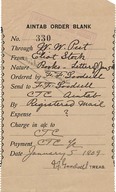 AINTAB ORDER BLANK
No. 330
Through W. W. Peet
From Eliot Stock
Nature Books + Letter Jan 5
Ordered by F. F. Goodell
Send to F. F. Goodell
CTC Aintab
By Registered Mail
Expense ?
Charge in up to
CTC
Payment CTC
Date January 5 1909
F. F. Goodsell TREAS.